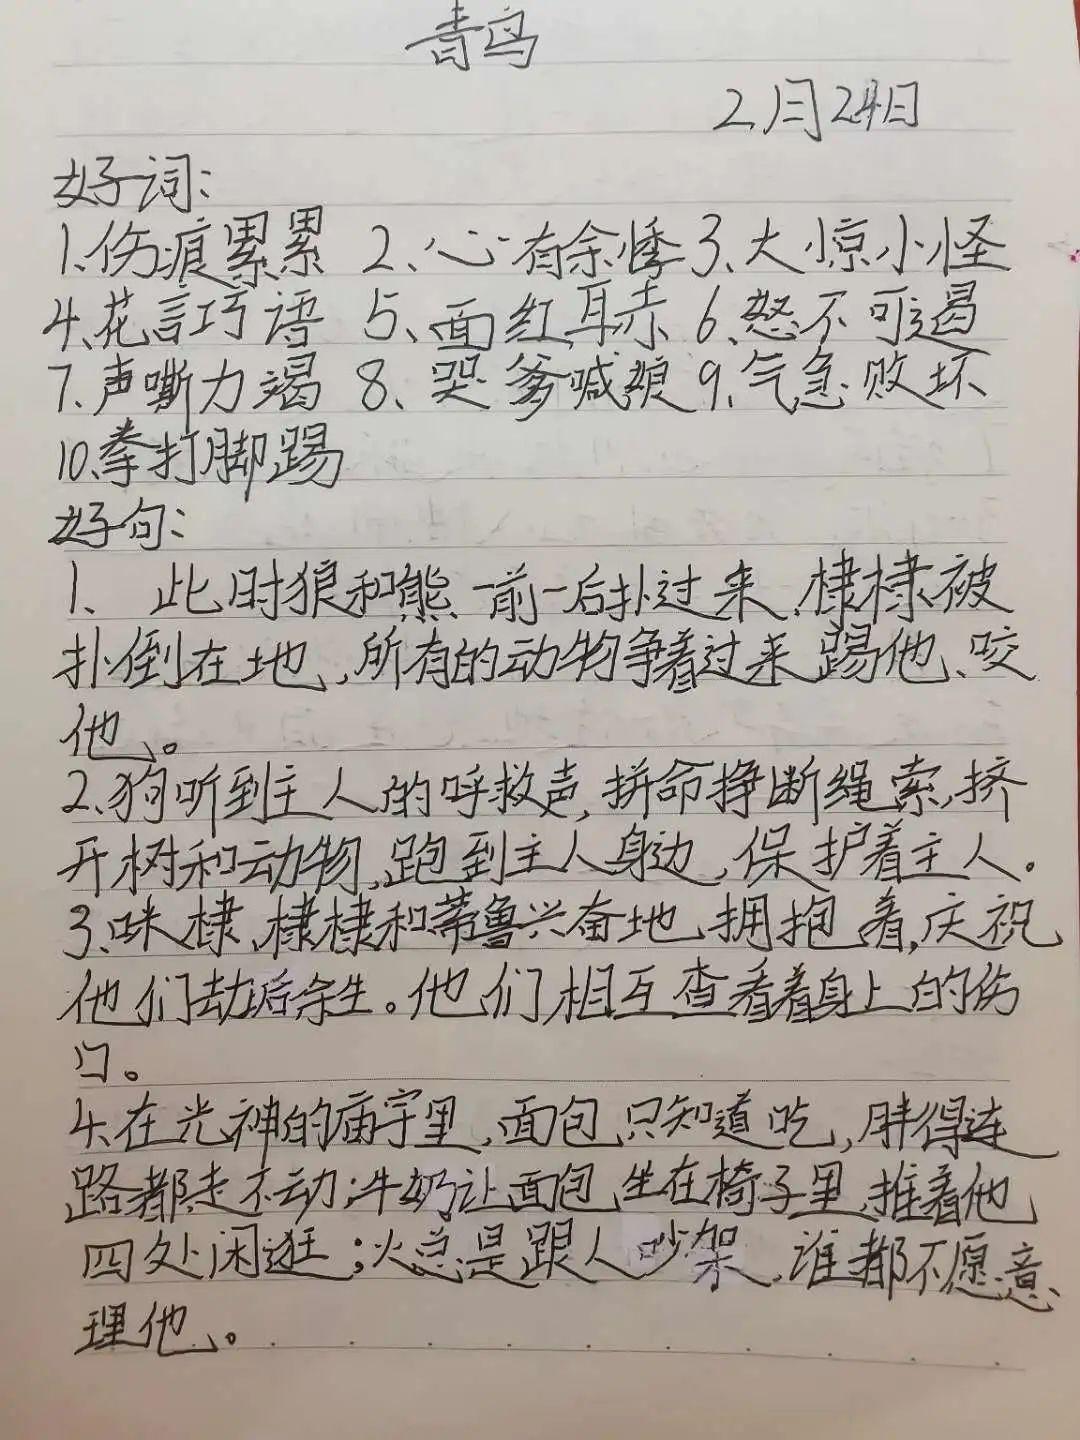 青鸟
2月24日
好词:
1、伤痕累累 2、心有余悸 3、大惊小怪
4、花言巧语 5、面红耳赤 6、怒不可遏
7、声嘶力竭 8、哭爹喊娘 9、气急败坏
10、拳打脚踢
好句:
1、 此时狼和熊一前一后扑过来,棣棣被
扑倒在地,所有的动物争着过来踢他、咬
他。
2、狗听到主人的呼救声,拼命挣断绳索,挤
开树和动物,跑到主人身边,保护着主人。
3、咪棣、棣棣和蒂鲁兴奋地拥抱着,庆祝
他们劫后余生。他们相互查看着身上的伤
口。
4、在光神的庙宇里,面包只知道吃,胖得连
路都走不动;牛奶让面包坐在椅子里,推着他
四处闲逛;火总是跟人吵架,谁都不愿意
理他。